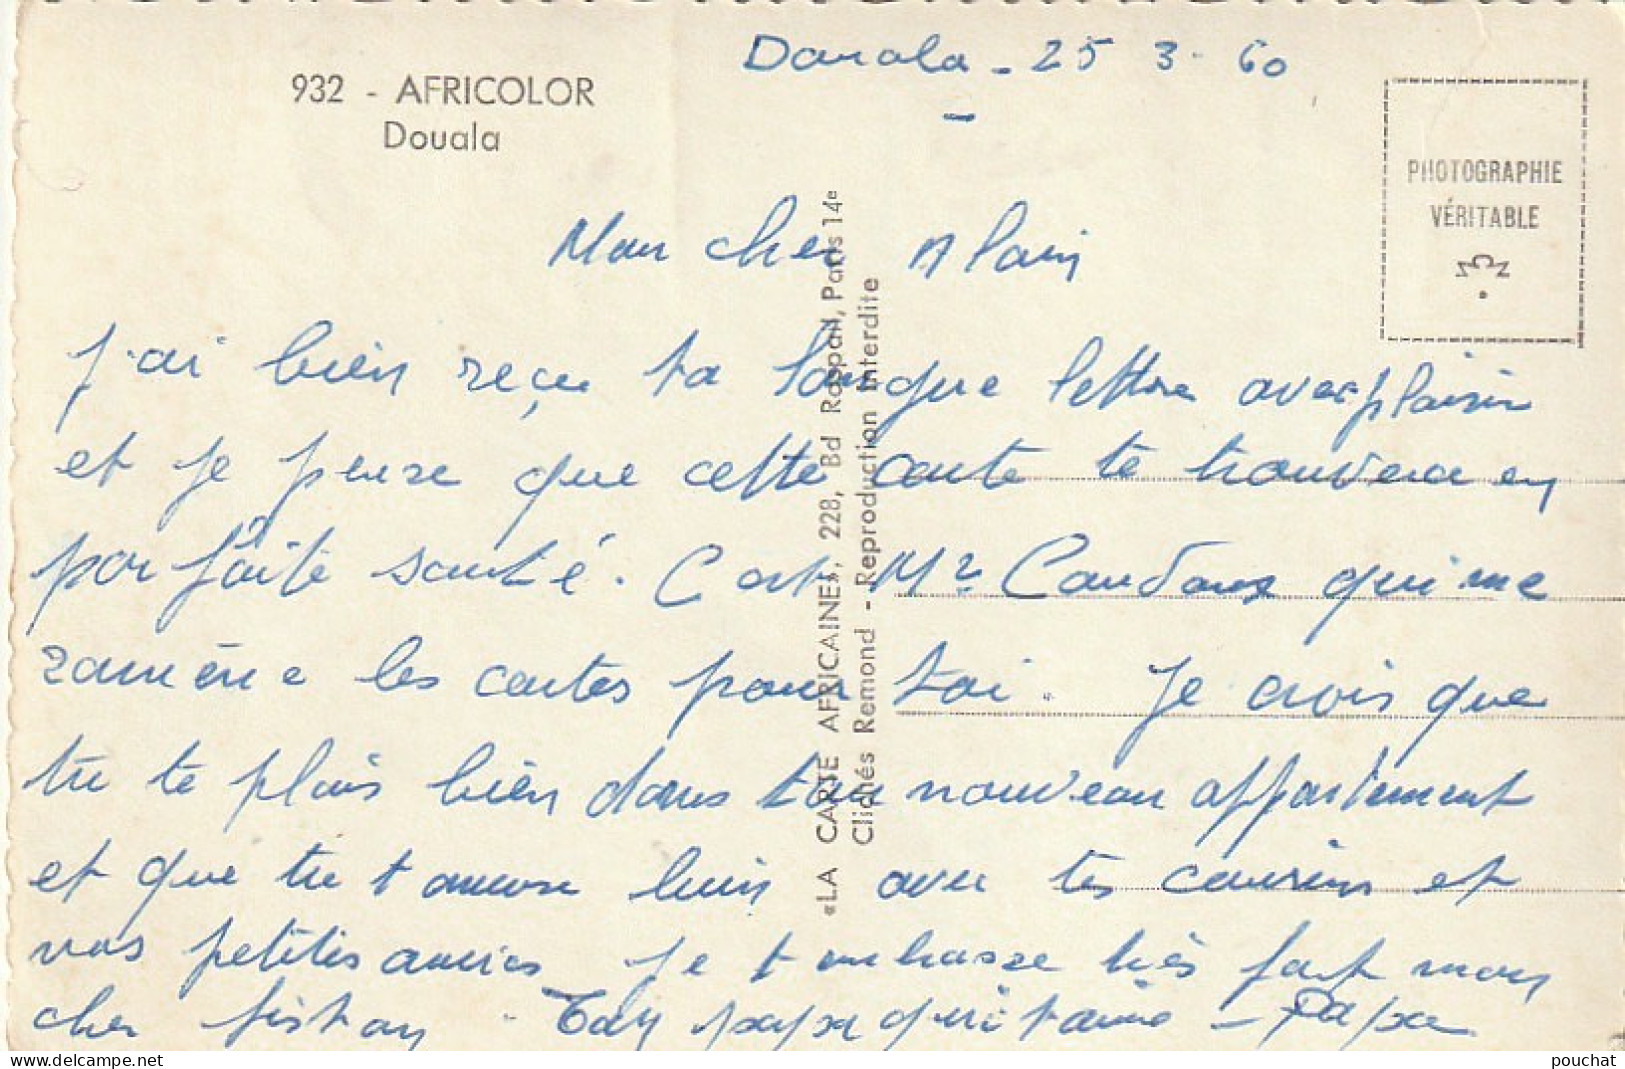 Douala - 25 3 - 60
932 - AFRICOLOR
Douala
PHOTOGRAPHIE
VÉRITABLE
Mon cher Alain
J'ai bien reçu ta longue lettre avec plaisir
et je pense que cette carte te trouvera en
parfaite santé. C'est Mr qui me
ramène les cartes pour toi. Je crois que
tu te plais bien dans ton nouveau appartement
et que tu t'amuse bien avec tes cousins et
vos petites amies Je t'embrasse très fort mon
cher fiston. Ton papa qui t'aime - Papa
«LA CARTE AFRICAINE», 228, Bd Raspail, Paris 14e
Clichés Remond - Reproduction Interdite
pouchat